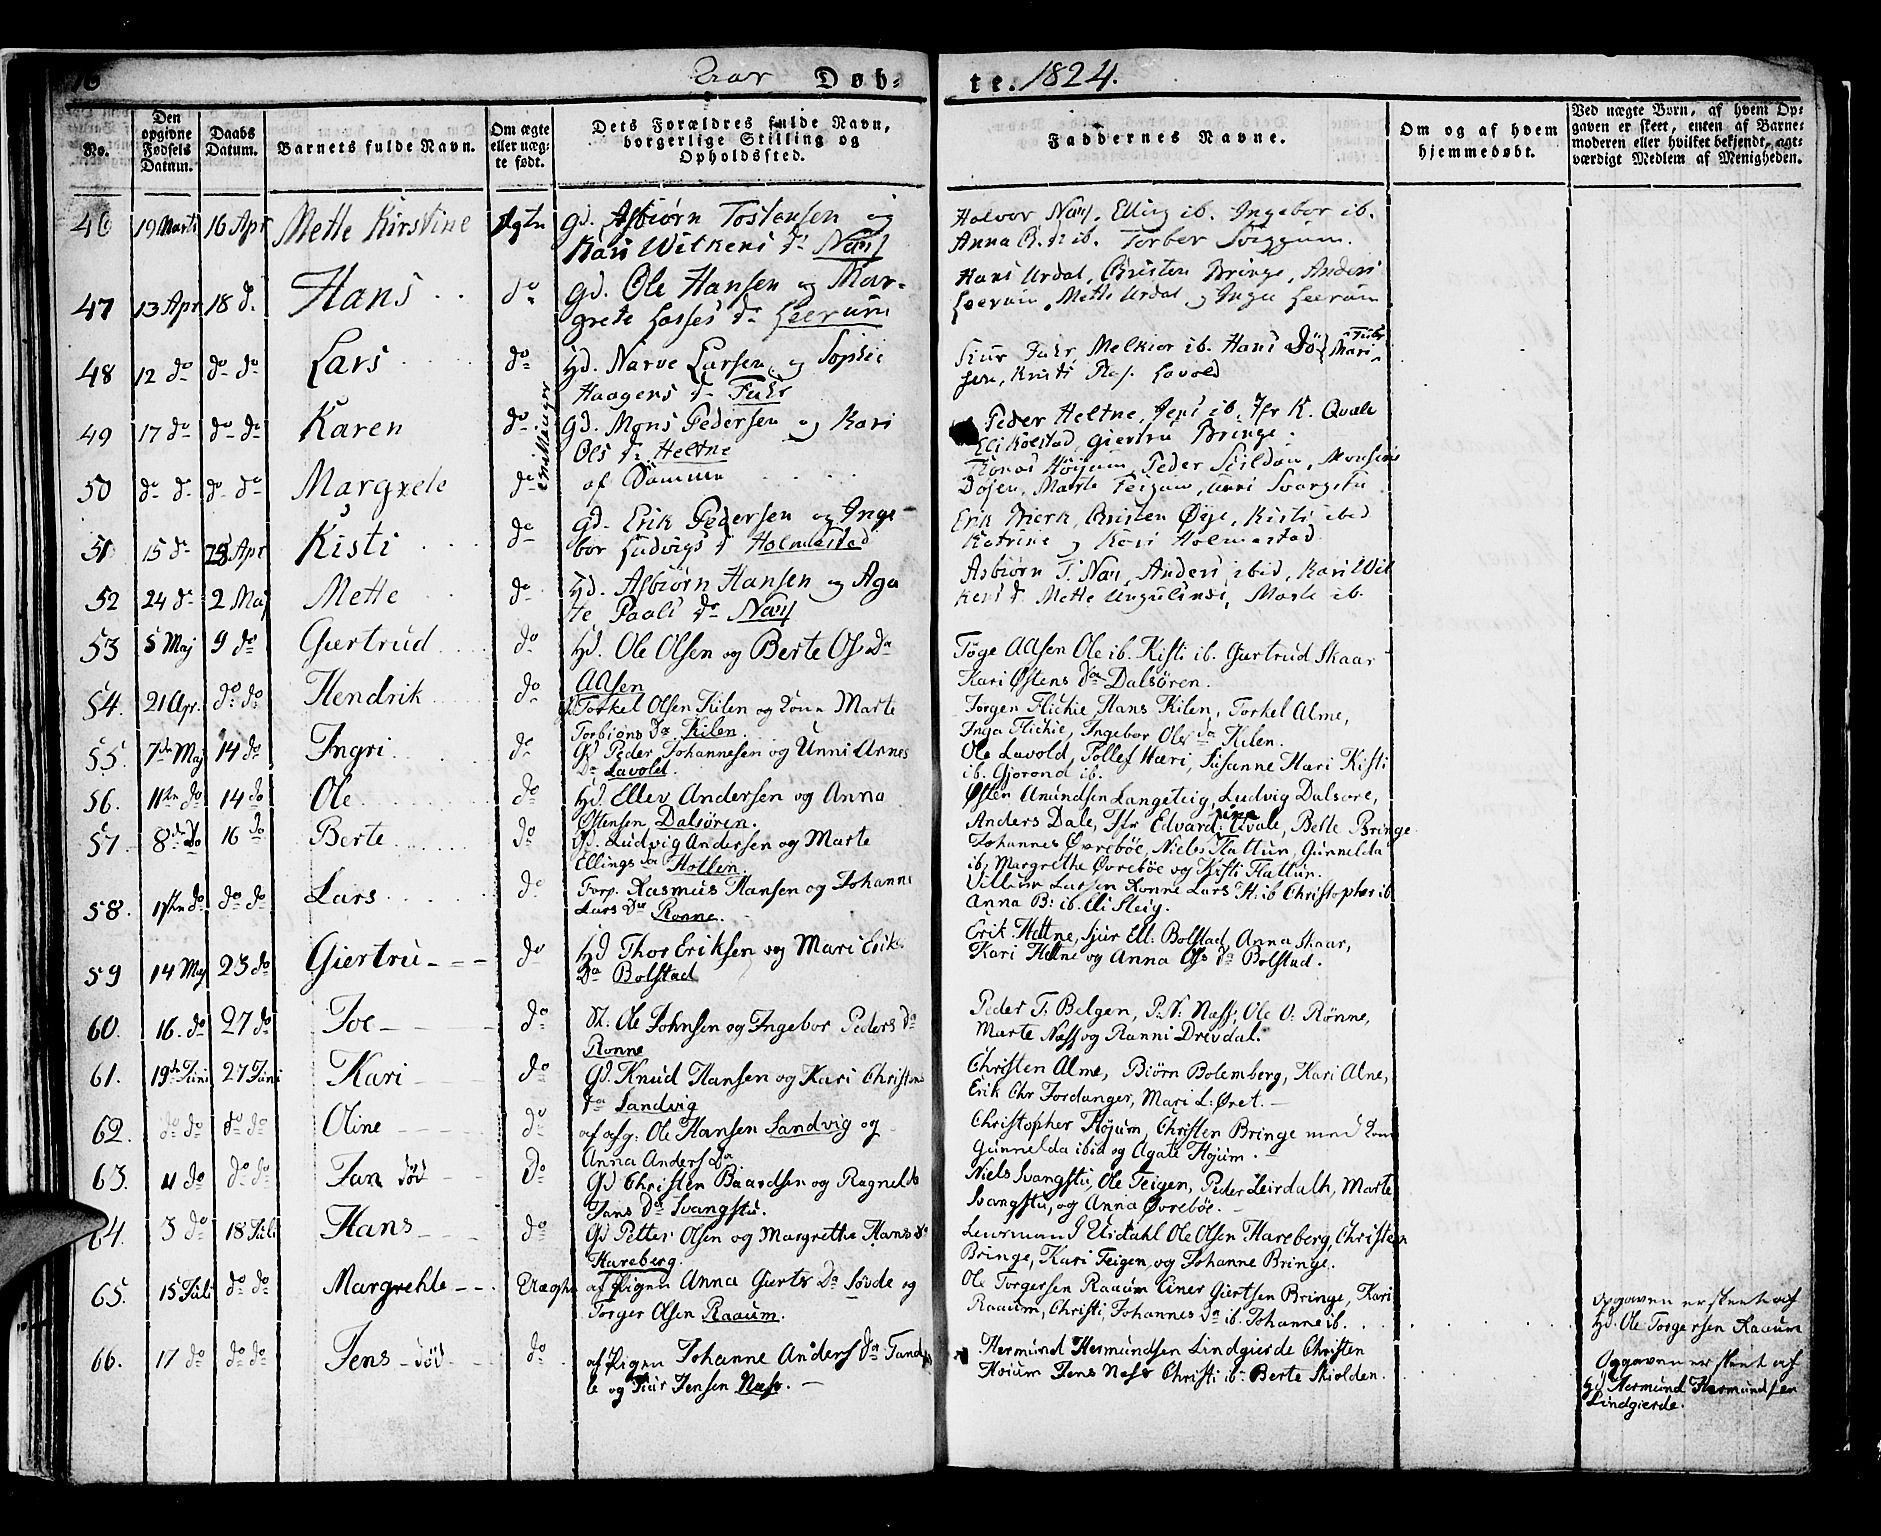 76 Aar Døb- te. 1824.
No.
Den opgivne Fødsels Datum.
Daabs Datum.
Barnets fulde Navn.
Om ægte eller uægte født.
Dets Forældres fulde Navn, borgerlige Stilling og Opholdssted.
Faddernes Navne.
Om og af hvem hjemmedøbt.
Ved uægte Børn, af hvem Opgaven er skeet, enten af Barnemoderen eller hvilket bekjendt, agtværdigt Medlem af Menigheden.
46 19 Marti 16 Apr Mette Kirstine Ægte Gd. Asbiørn Tostensen og
Kari Wilkens Dr Næss
Halvor Næs. Elling ib. Ingebor ib.
Anna ib. Torber
47 13 Apr 18 d. Hans do Gd. Ole Hansen og Mar-
grete Lasses Dr Leerum
Hans Urdal, Christen Bringe, Anders
Leerum, Mette Urdal og Inga Leerum
48 12 do do do Lars do Hd. Narve Larsen og Sophie
Haagens Dr Fuhr
Siur Fuhr, Melkior ib. Hans Mari Fuhr
Kristi Lavold
49 17 do do do Karen do Gd. Mons Pedersen og Kari
Ols Dr Heltne
Peder Heltne, Jens ib, Jfr K. Qvale
Eli Kolstad, Giertru Bringe.
50 do do do do Margrete do af Samme
Tomas Høyum, Peder
Døsen, Marte Feigum,
51 15 do 25 Apr Kisti do Gd. Erik Pedersen og Inge-
bor Ludvigs Dr Holmestad
Erik Bierk, Christen Øye, Kisti ibid
Katrine og Kari Holmestad
52 24 do 2 Maj Mette do Hd. Asbiørn Hansen og Aga
te Paals Dr Næss
Asbiørn T. Næs, Anders ibid, Kari Wil
kens Dr Mette Marte ib.
53 5 Maj 9 do Giertrud do Hd. Ole Olsen og Berte Ols Dr
Aasen
Tøge Aasen Ole ib. Kisti ib. Giertrud Skaar
Kari Østens Dr Dalsøren.
54. 21 Apr. do do Hendrik do Torkel Olsen Kilen og Kone Marte
Torbions Dr Kilen.
Jørgen Flickie, Hans Kilen, Torkel Alme,
Inga Flickie, Ingebor Ols Dr Kilen.
55. 7de Maj 14 do Ingri do Gd Peder Johannesen og Unni Arnes
Dr Lavold.
Ole Lavold, Tollef Hæri, Susanne Hari Kisti
ib. Gjorond ib.
56. 11te do 14 do Ole do Hd. Ellev Andersen og Anna
Ostensen Dalsøren.
Østen Amundsen Langeteig, Ludvig Dalsøre,
Anders Dale, Jfr Edvardine Qvale, Berte Bringe
57. 8de do 16 do Berte do Gd. Ludvig Andersen og Marte
Ellings Dr Hotlen.
Johannes Øvrebøe, Niels Flattun, Gunnelda
ib, Margrethe Øvrebøe og Kisti Flattun.
58. 17de do do do Lars do Forp. Rasmus Hansen og Johanne
Lars Dr Rønne.
Villum Larsen Rønne Lars H: ib Christopher ib
Anna B: ib. Eli Steig.
59 14 Maj 23 do Giertru do Hd Thor Eriksen og Mari Eriks
Dr Bolstad
Erik Heltne, Sjur Ell: Bolstad, Anna Skaar,
Kari Heltne og Anna Ols Dr Bolstad.
60. 16. do 27 do Joe do St. Ole Johnsen og Ingebor Peders Dr
Rønne
Peder T. Bolgen, P. N: Næss, Ole O: Rønne,
Marte Næss og Ranni Drevdal.
61. 19de Juni 27 Juni Kari do Gd. Knud Hansen og Kari Christens
Dr Sandvig
Christen Alme, Biørn Bolemberg, Kari Alme,
Erik Chr Fordanger, Mari L: Øret.
62. do do do do Oline do af afg: Ole Hansen Sandvig og
Anna Anders Dr
Christopher Høyum, Christen Bringe med Kone
Gunnelda ibid og Agate Høium.
63. 4 do do do Jan død do Gd Christen Baardsen og Ragnelde
Jans Dr Svangstu.
Niels Svangstu, Ole Teigen, Peder Leirdalh, Marte
Svangstu, og Anna Øvrebøe.
64. 3 do 18 Juli Hans do Gd Petter Olsen og Margrethe Hans Dr
Hareberg.
Leurmand Uidahl Ole Olsen Hareberg, Christen
Bringe, Kari Teigen og Johanne Bringe.
65. 15 Juli do do Margrehte Uægte af Pigen Anna Gierts Dr Søvde og
Torger Olsen Raaum.
Ole Torgersen Raaum Einer Giertsen Bringe, Kari
Raaum, Christi Johannes Dr ib. Johanne ib.
Opgaven er skeet af
Hd. Ole Torgersen Raaum
66. 17 do do do Jens død do af Pigen Johanne Anders Dr
og Siur Jensen Næss.
Hermund Hermundsen Lindgierde Christen
Høium Jens Næss Christi ib. Berte Skiolden.
Opgaven er skeet af
Hd Hermund Hermundsen
Lindgierde.
Urettmenger